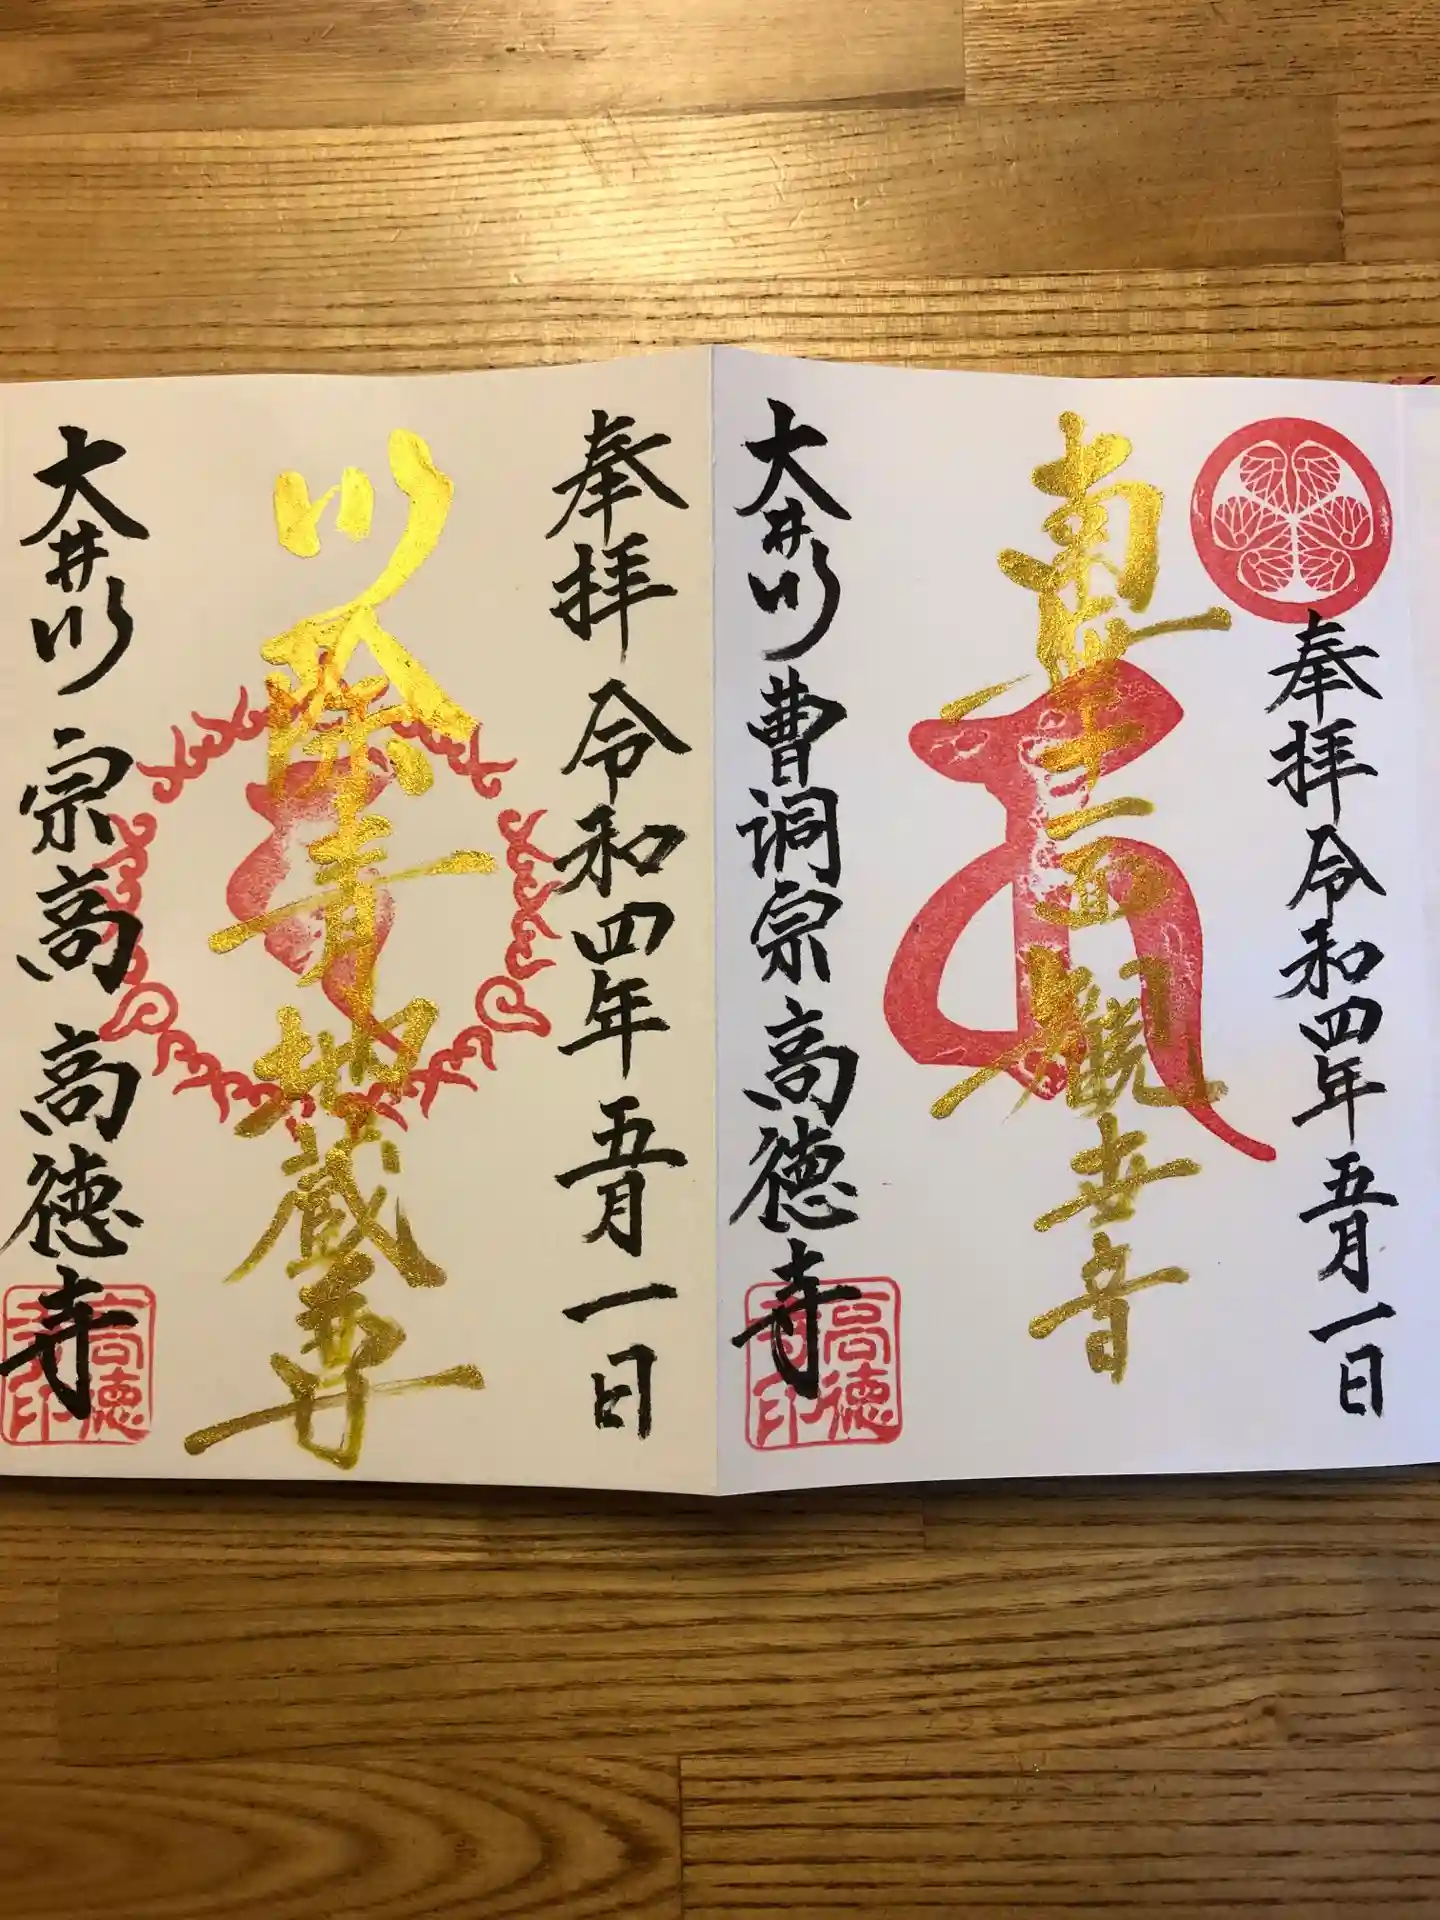 奉拝 令和四年 五月一日
十一面観世音
大井川 曹洞宗 高徳寺
高徳寺印
奉拝 令和四年 五月一日
川除青地蔵尊
大井川 宗高 高徳寺
高徳寺印